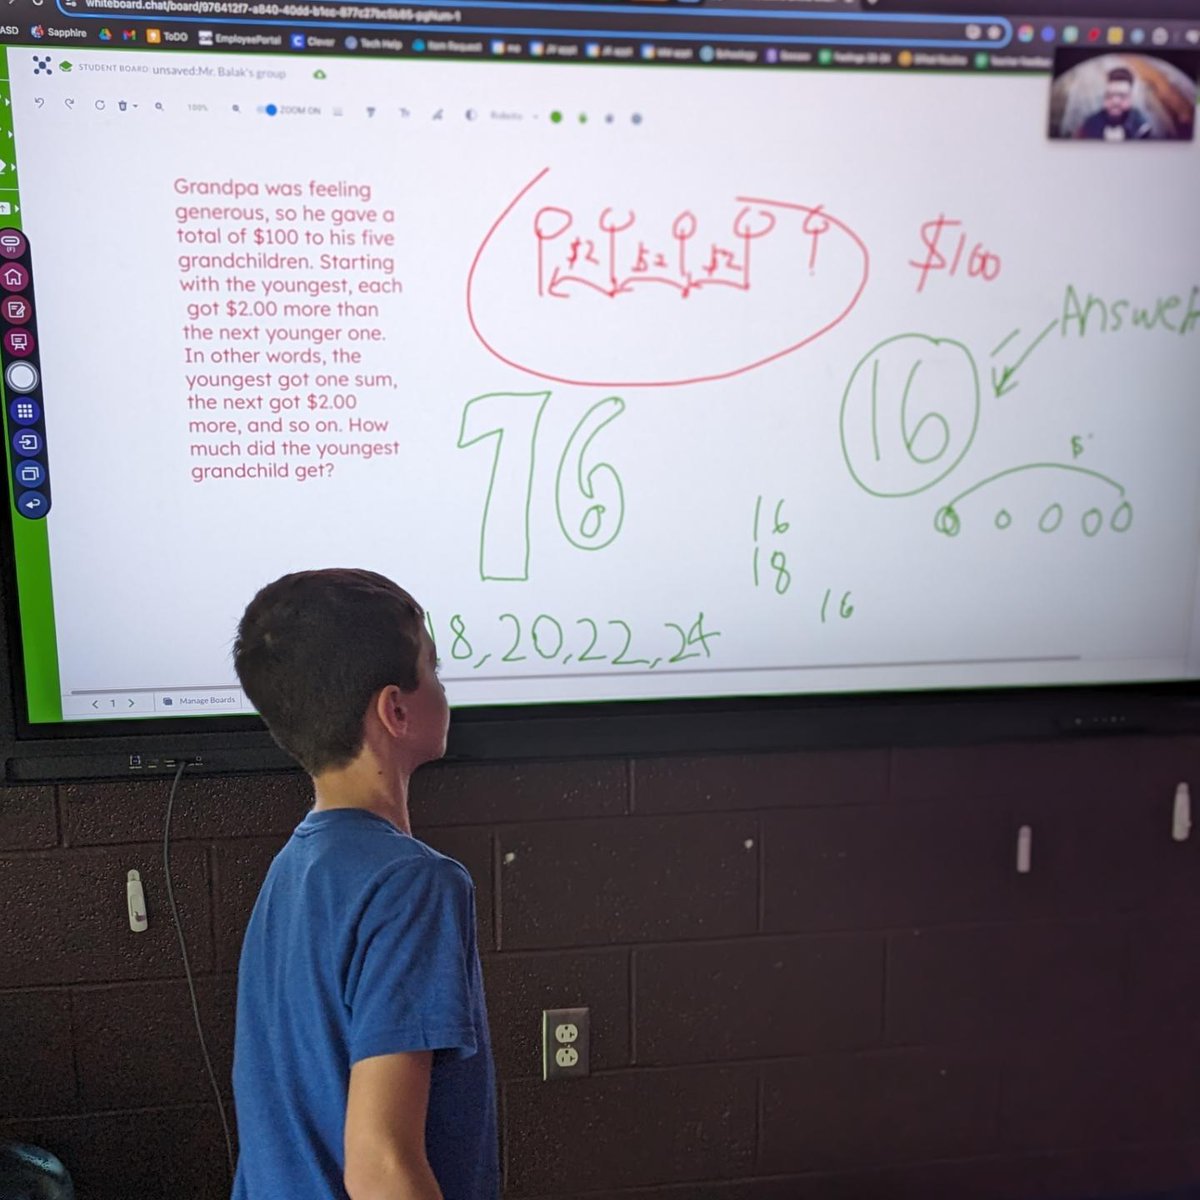 whiteboard.chat/board/976412f7-a840-40dd-b1cc-877c27bc5b85-pgNum-1
ASD Sapphire ToDO EmployeePortal Clever Tech Help Item Request
STUDENT BOARD: unsaved:Mr. Balak's group
100% ZOOM ON Roboto
Grandpa was feeling
generous, so he gave a
total of $100 to his five
grandchildren. Starting
with the youngest, each
got $2.00 more than
the next younger one.
In other words, the
youngest got one sum,
the next got $2.00
more, and so on. How
much did the youngest
grandchild get?
$2 $2 $2
$100
Answer
16
16
16
18
16
18,20,22,24
< 1 > Manage Boards